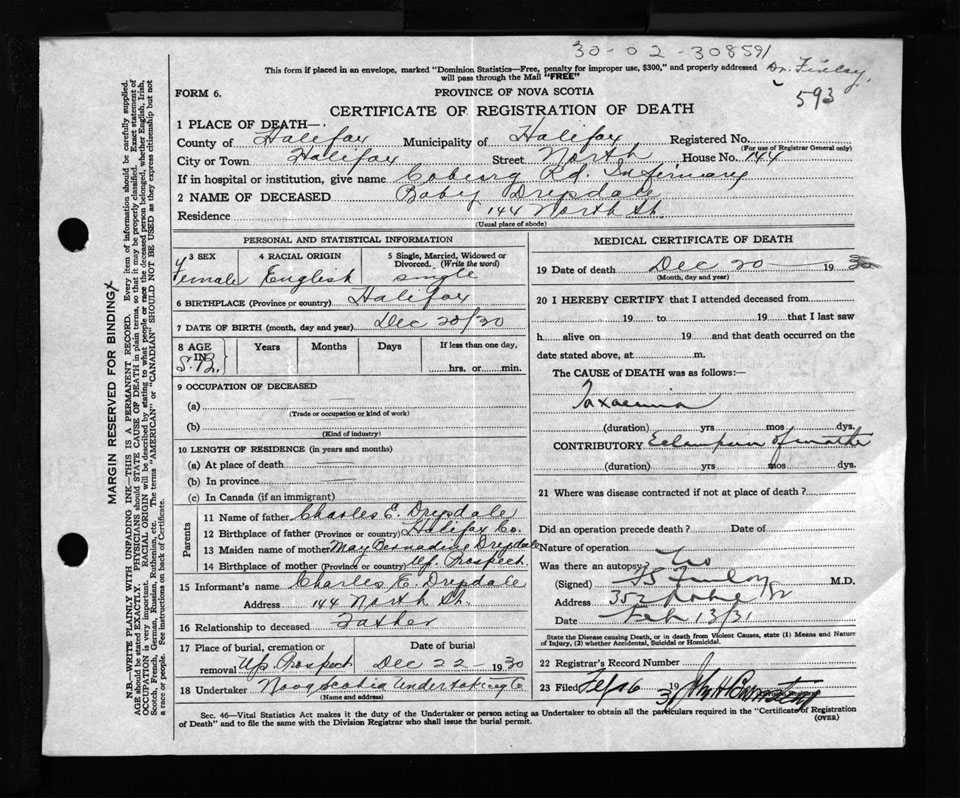 30-02-308591
This form if placed in an envelope, marked "Dominion Statistics—Free, penalty for improper use, $300," and properly addressed Dr. Finlay,
will pass through the Mail "FREE"
593
FORM 6. PROVINCE OF NOVA SCOTIA
CERTIFICATE OF REGISTRATION OF DEATH
1 PLACE OF DEATH—
County of Halifax Municipality of Halifax Registered No.
(For use of Registrar General only)
City or Town Halifax Street North House No. 144
If in hospital or institution, give name Coburg Rd. Infirmary
2 NAME OF DECEASED Baby Drysdale
Residence 144 North St.
(Usual place of abode)
PERSONAL AND STATISTICAL INFORMATION
3 SEX 4 RACIAL ORIGIN 5 Single, Married, Widowed or Divorced. (Write the word)
Female English Single
6 BIRTHPLACE (Province or country) Halifax
7 DATE OF BIRTH (month, day and year) Dec 20/30
8 AGE IN Years Months Days If less than one day,
S.B. hrs. or min.
9 OCCUPATION OF DECEASED
(a)
(Trade or occupation or kind of work)
(b)
(Kind of industry)
10 LENGTH OF RESIDENCE (in years and months)
(a) At place of death
(b) In province
(c) In Canada (if an immigrant)
Parents
11 Name of father Charles E. Drysdale
12 Birthplace of father (Province or country) Halifax Co.
13 Maiden name of mother May Bernadine Drysdale
14 Birthplace of mother (Province or country) Up. Prospect
15 Informant's name Charles E. Drysdale
Address 144 North St.
16 Relationship to deceased Father
17 Place of burial, cremation or removal Date of burial
Up. Prospect Dec 22 1930
18 Undertaker Nova Scotia Undertaking Co
(Name and address)
MEDICAL CERTIFICATE OF DEATH
19 Date of death Dec 20 1930
(Month, day and year)
20 I HEREBY CERTIFY that I attended deceased from
19 to 19 that I last saw
h alive on 19 and that death occurred on the
date stated above, at m.
The CAUSE of DEATH was as follows:—
Toxaemia
(duration) yrs mos dys.
CONTRIBUTORY Eclampsia of mother
(duration) yrs mos dys.
21 Where was disease contracted if not at place of death?
Did an operation precede death? Date of
Nature of operation
Was there an autopsy? No
(Signed) Finlay M.D.
Address 352
Date Feb 13/31
State the Disease causing Death, or in death from Violent Causes, state (1) Means and Nature of Injury, (2) whether Accidental, Suicidal or Homicidal.
22 Registrar's Record Number
23 Filed Feb 16 1931
Sec. 46—Vital Statistics Act makes it the duty of the Undertaker or person acting as Undertaker to obtain all the particulars required in the "Certificate of Registration
of Death" and to file the same with the Division Registrar who shall issue the burial permit.
(OVER)
MARGIN RESERVED FOR BINDING
N.B.—WRITE PLAINLY WITH UNFADING INK—THIS IS A PERMANENT RECORD. Every item of information should be carefully supplied.
AGE should be stated EXACTLY. PHYSICIANS should STATE CAUSE OF DEATH in plain terms, so that it may be properly classified. Exact statement of
OCCUPATION is very important. RACIAL ORIGIN will be described by stating to what people or race the deceased person belonged, whether English, Irish,
Scotch, French, German, Russian, Ruthenian, etc. The terms "AMERICAN" or "CANADIAN" SHOULD NOT BE USED as they express citizenship but not
a race or people. See instructions on back of Certificate.